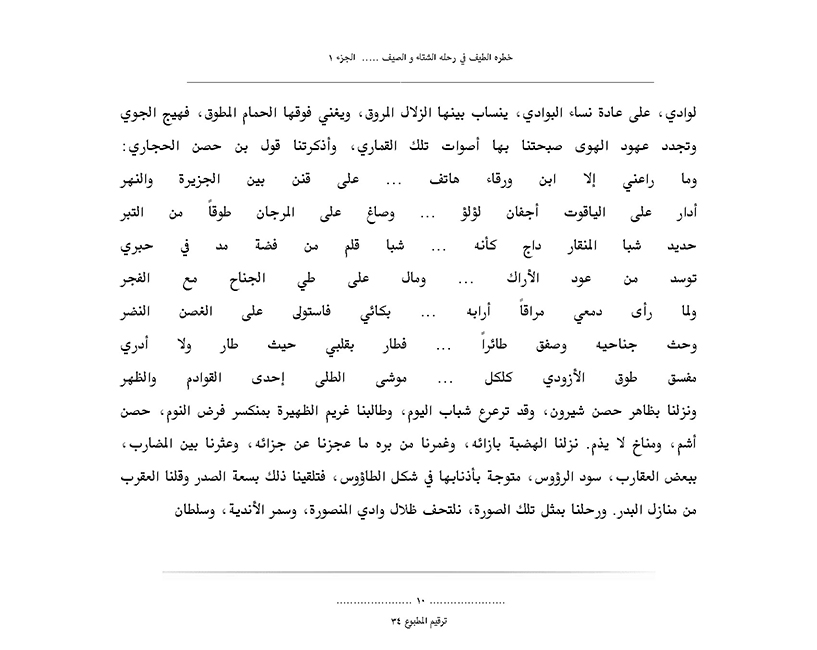 خطره الطيف في رحله الشتاء و الصيف ..... الجزء ١
لوادي، على عادة نساء البوادي، ينساب بينها الزلال المروق، ويغني فوقها الحمام المطوق، فهيج الجوي
وتجدد عهود الهوى صبحتنا بها أصوات تلك القماري، وأذكرتنا قول بن حصن الحجاري:
وما راعني إلا ابن ورقاء هاتف ... على قنن بين الجزيرة والنهر
أدار على الياقوت أجفان لؤلؤ ... وصاغ على المرجان طوقاً من التبر
حديد شبا المنقار داج كأنه ... شبا قلم من فضة مد في حبري
توسد من عود الأراك ... ومال على طي الجناح مع الفجر
ولما رأى دمعي مراقاً أرابه ... بكائي فاستولى على الغصن النضر
وحث جناحيه وصفق طائراً ... فطار بقلبي حيث طار ولا أدري
مفسق طوق الأزودي كلكل ... موشى الطلى إحدى القوادم والظهر
ونزلنا بظاهر حصن شيرون، وقد ترعرع شباب اليوم، وطالبنا غريم الظهيرة بمنكسر فرض النوم، حصن
أشم، ومناخ لا يذم. نزلنا الهضبة بازائه، وغمرنا من بره ما عجزنا عن جزائه، وعثرنا بين المضارب،
ببعض العقارب، سود الرؤوس، متوجة بأذنابها في شكل الطاؤوس، فتلقينا ذلك بسعة الصدر وقلنا العقرب
من منازل البدر. ورحلنا بمثل تلك الصورة، نلتحف ظلال وادي المنصورة، وسمر الأندية، وسلطان
...................... ١٠ ......................
ترقيم المطبوع ٣٤